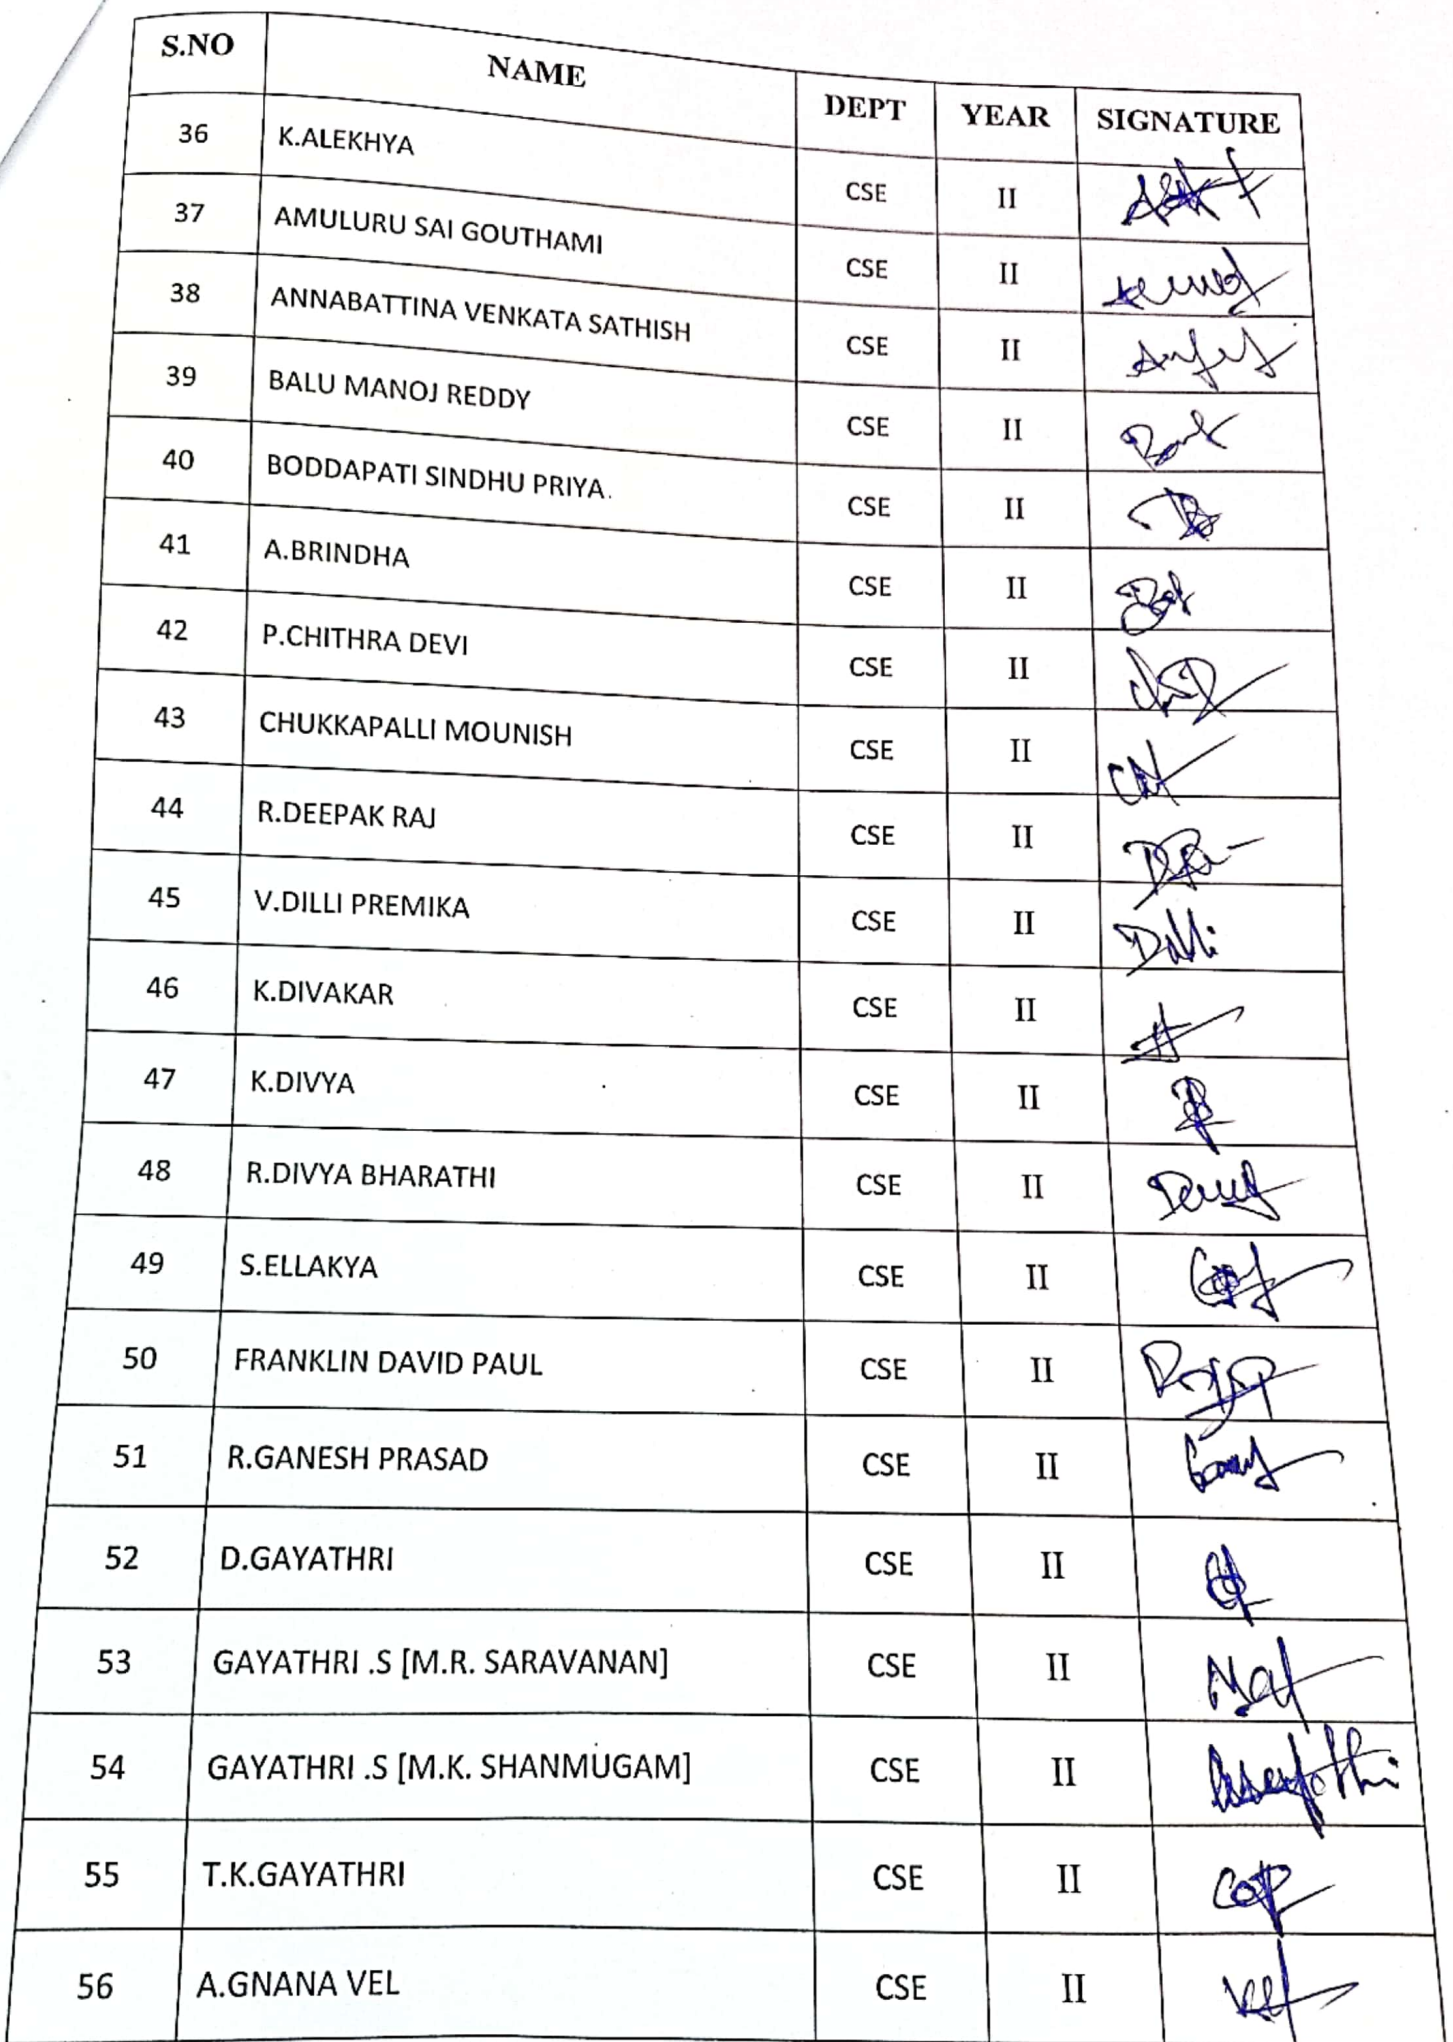 S.NO NAME DEPT YEAR SIGNATURE
36 K.ALEKHYA CSE II
37 AMULURU SAI GOUTHAMI CSE II
38 ANNABATTINA VENKATA SATHISH CSE II
39 BALU MANOJ REDDY CSE II
40 BODDAPATI SINDHU PRIYA. CSE II
41 A.BRINDHA CSE II
42 P.CHITHRA DEVI CSE II
43 CHUKKAPALLI MOUNISH CSE II
44 R.DEEPAK RAJ CSE II
45 V.DILLI PREMIKA CSE II
46 K.DIVAKAR CSE II
47 K.DIVYA CSE II
48 R.DIVYA BHARATHI CSE II
49 S.ELLAKYA CSE II
50 FRANKLIN DAVID PAUL CSE II
51 R.GANESH PRASAD CSE II
52 D.GAYATHRI CSE II
53 GAYATHRI .S [M.R. SARAVANAN] CSE II
54 GAYATHRI .S [M.K. SHANMUGAM] CSE II
55 T.K.GAYATHRI CSE II
56 A.GNANA VEL CSE II